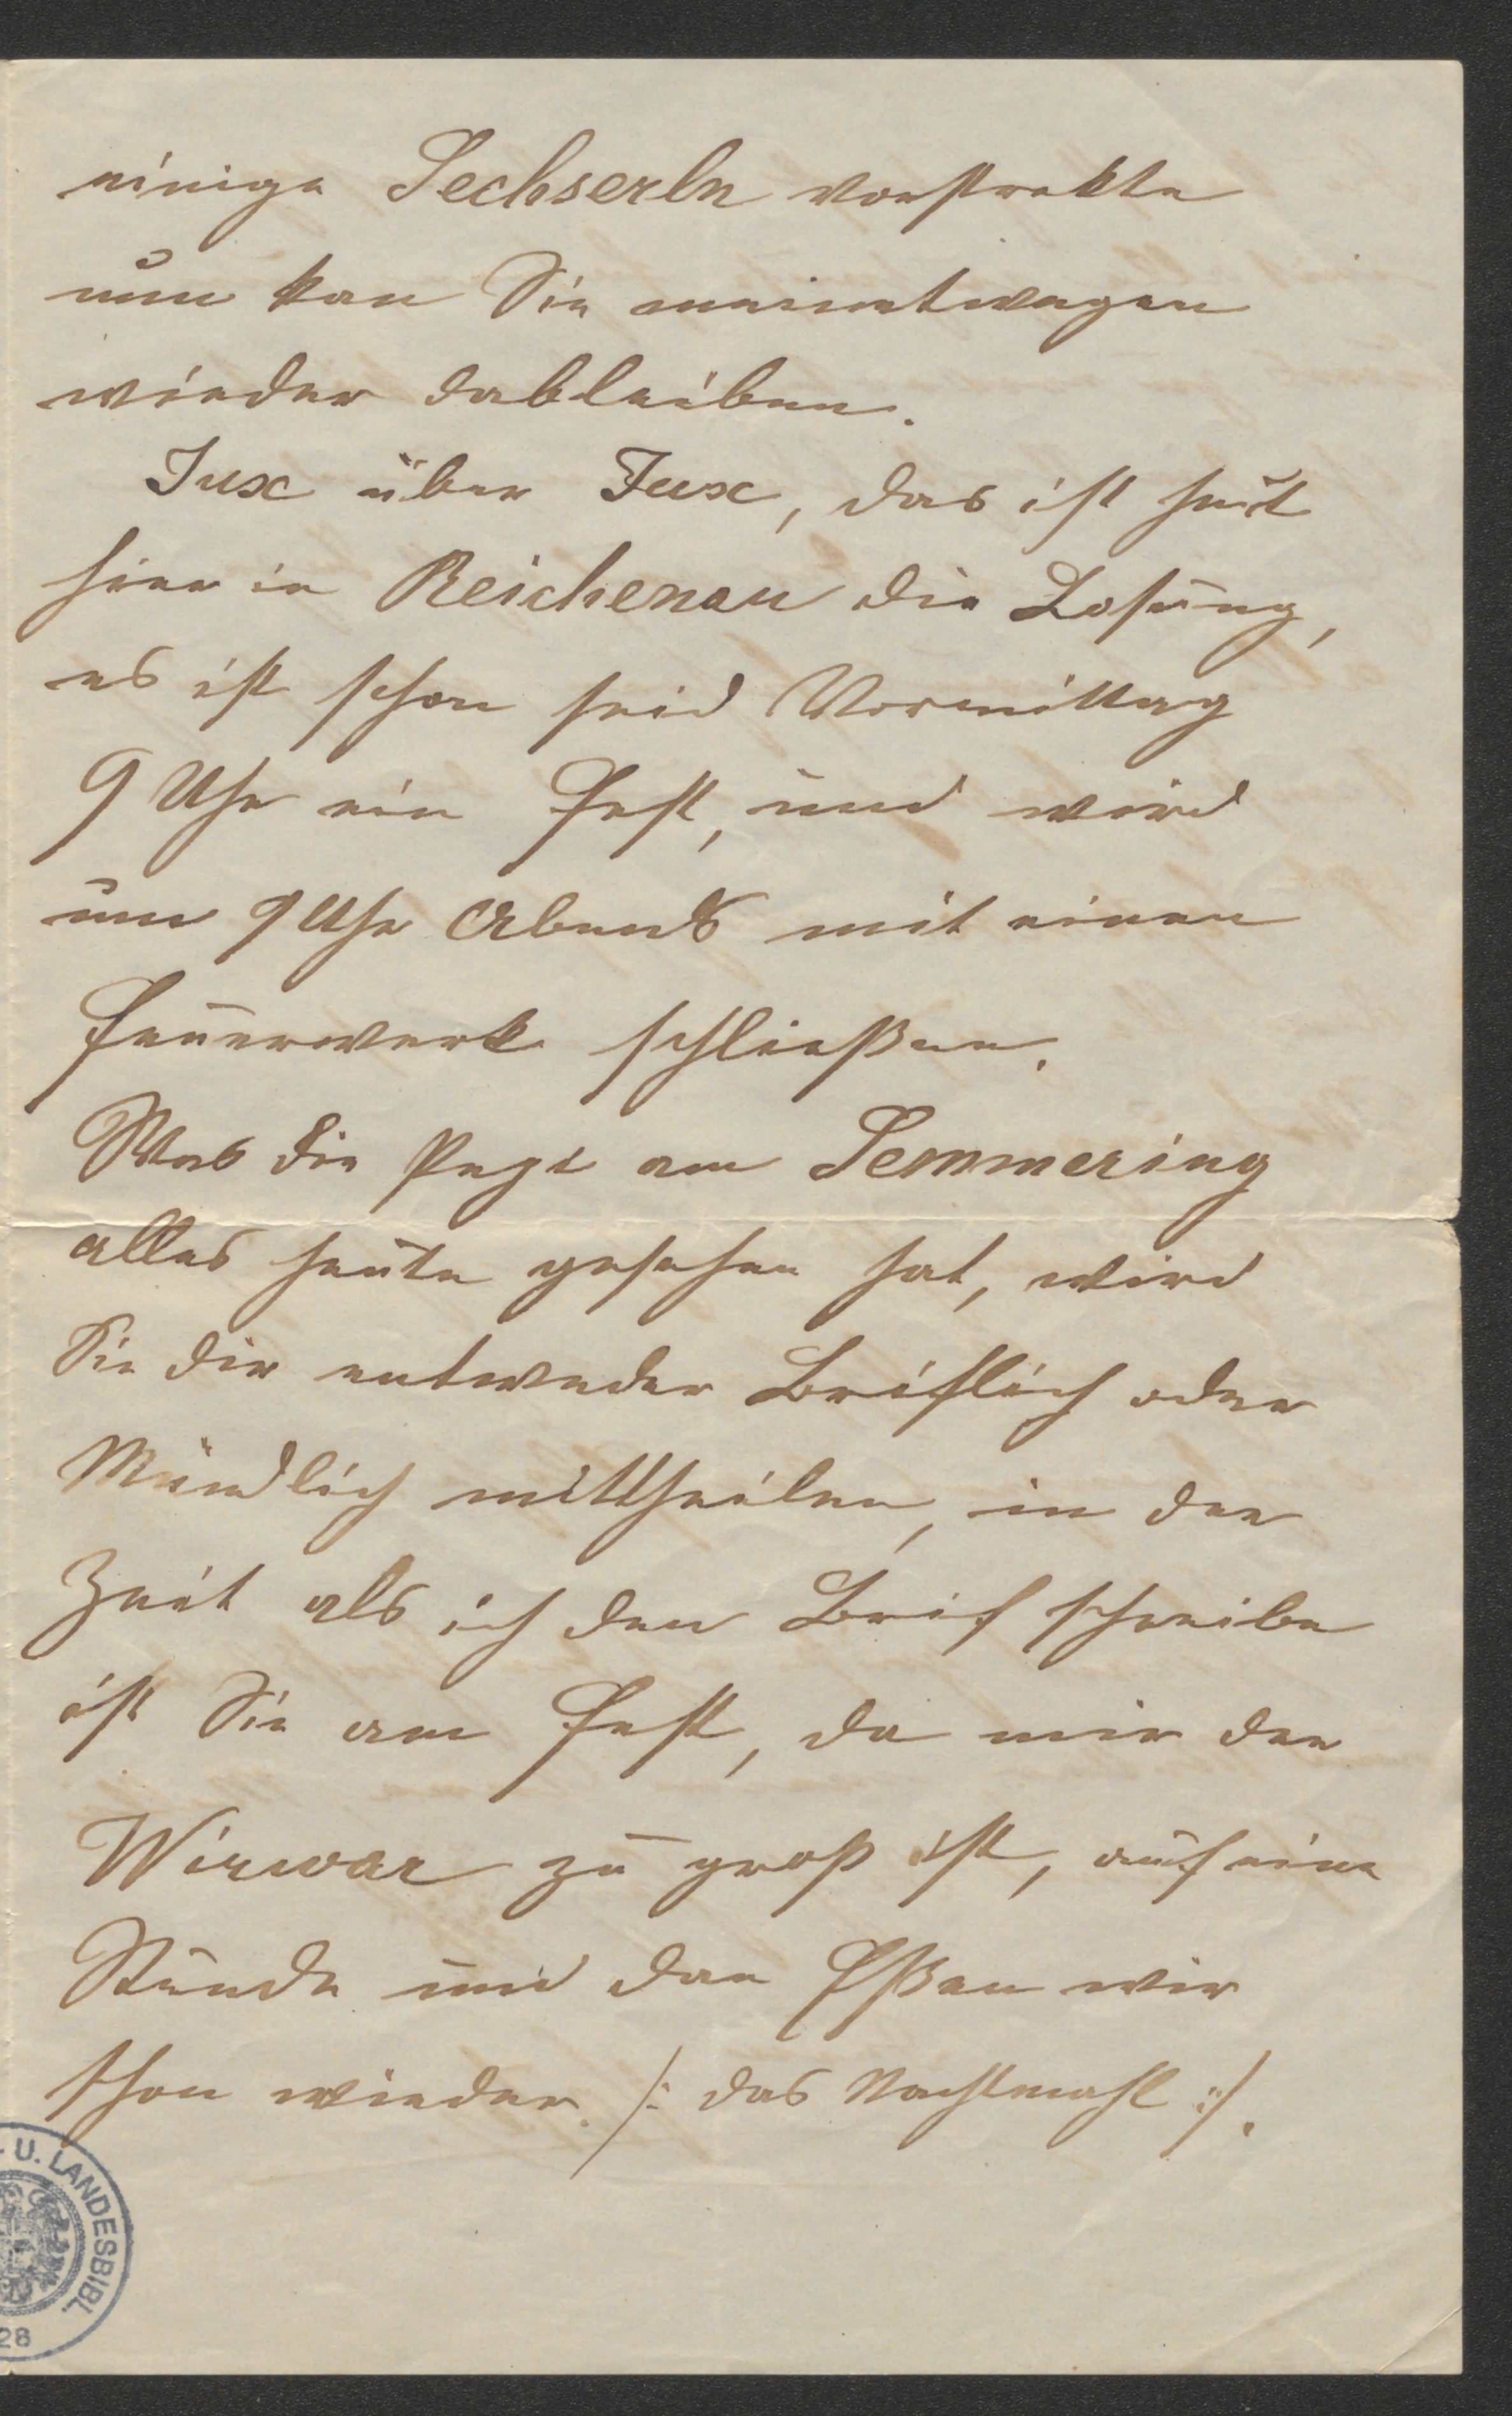 einige Sechserln vorstrekte
nun kan Sie meinetwegen
wieder dableiben.
Jux über Jux, das ist heut
hier in Reichenau die Losung,
es ist schon seid Vormittag
9 Uhr ein Fest, und wird
um 9 Uhr Abends mit einen
Feuerwerk schließen.
Was die Pepi am Semmering
alles heute gesehen hat, wird
Sie dir entweder Brieflich oder
Mündlich mittheilen, in der
Zeit als ich den Brief schreibe
ist Sie am Fest, da mir der
Wirwar zu groß ist, auf eine
Stunde und dan Eßen wir
schon wieder. /: das Nachtmahl :/.
U. LANDESBIBL.
28